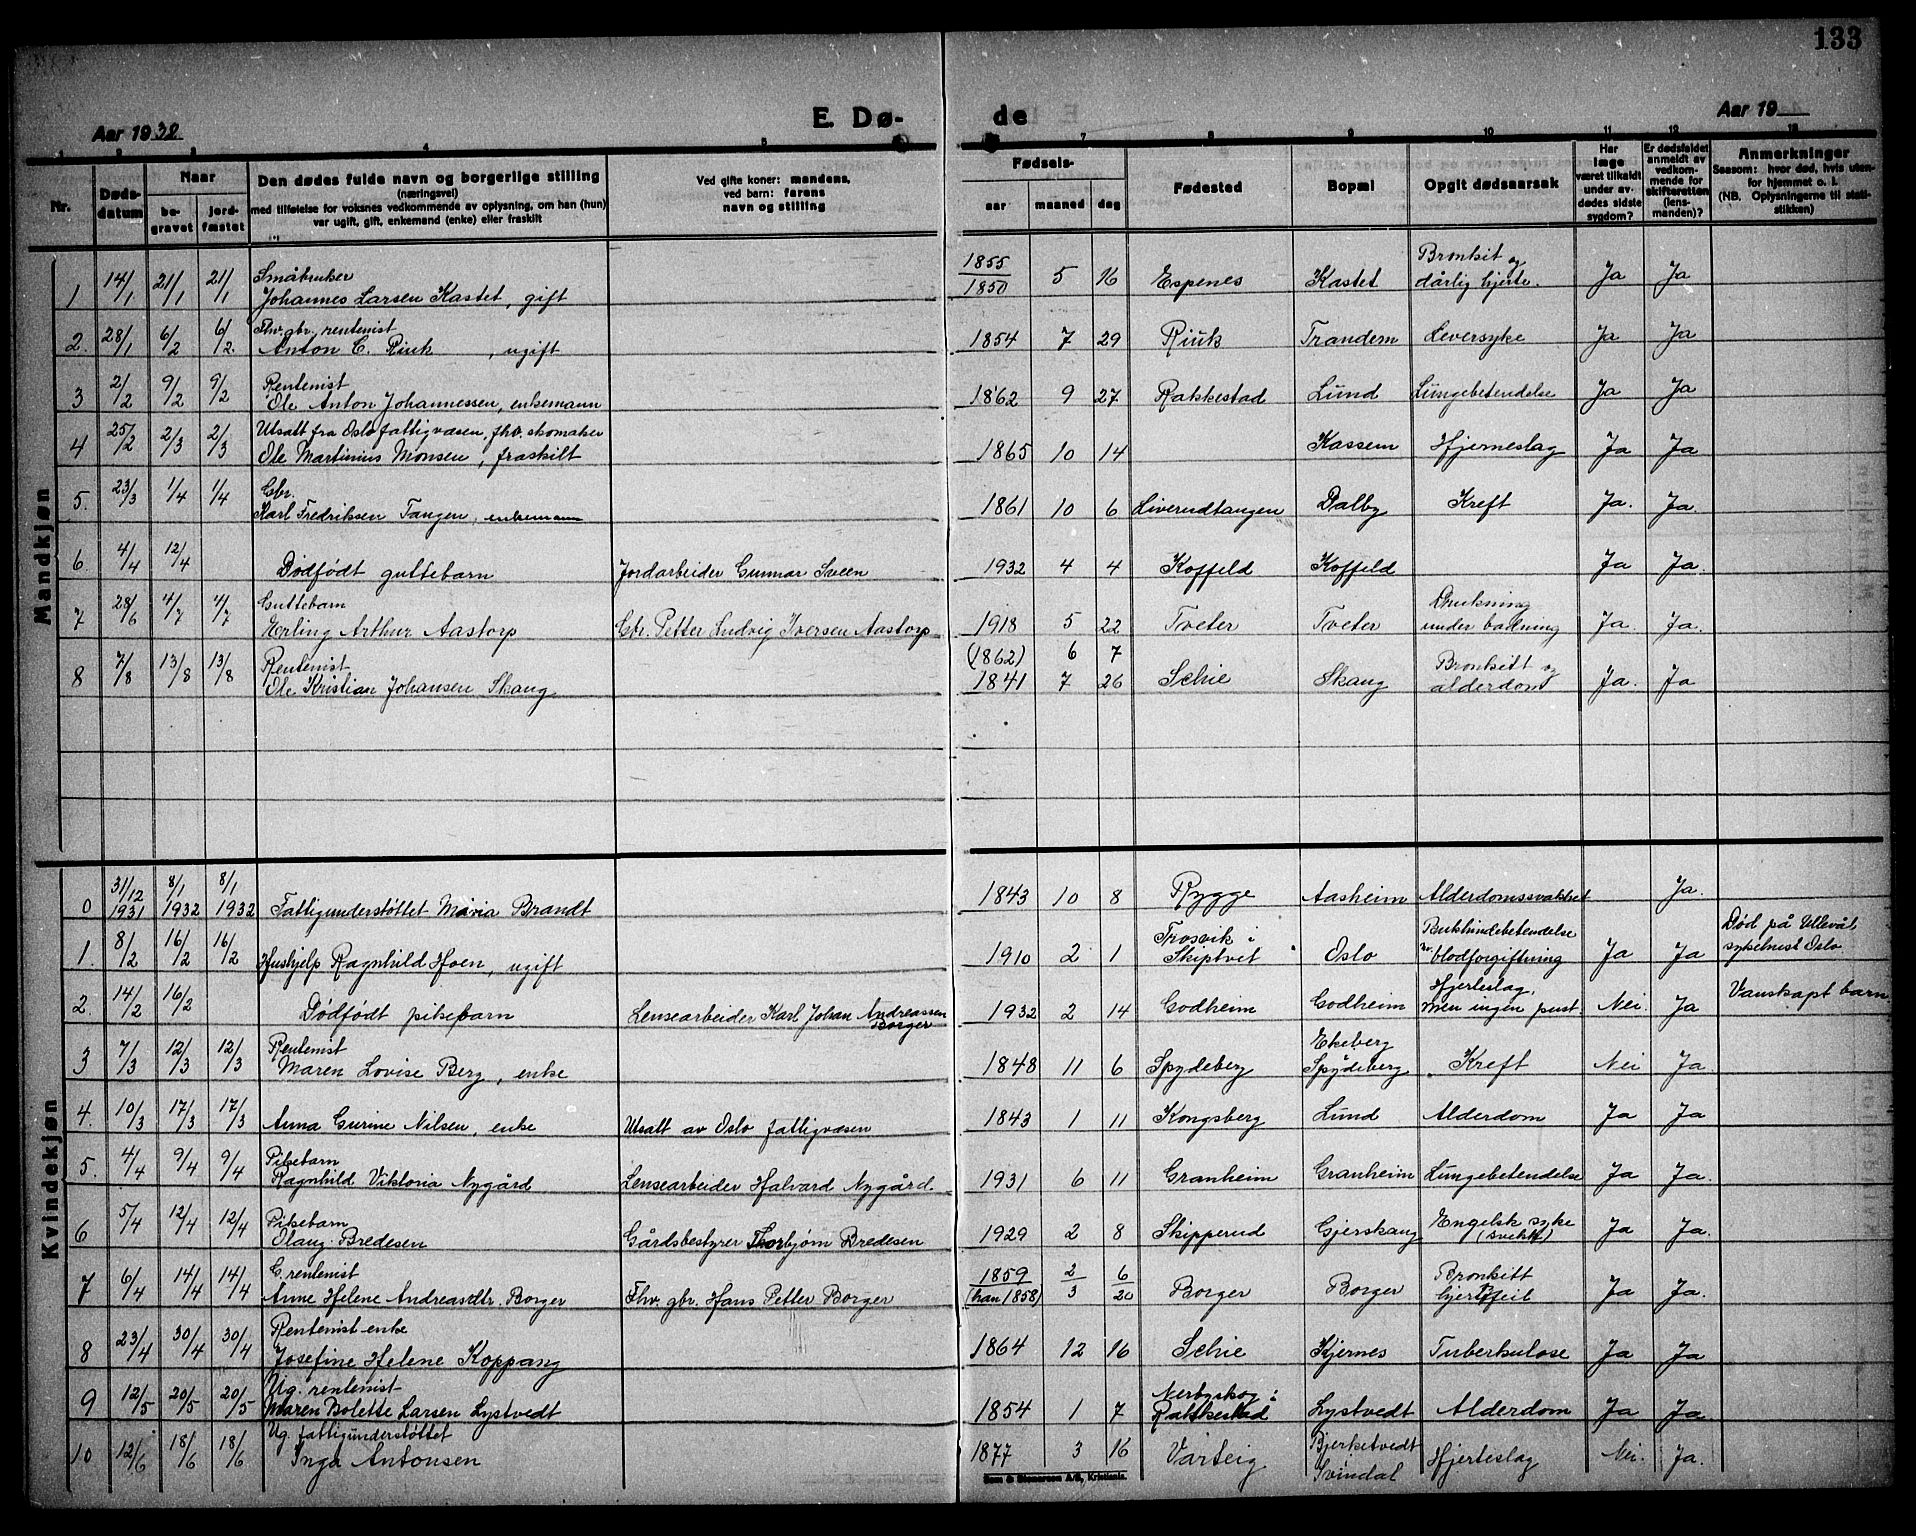 133
Aar 1932
E. Dø-
de
Aar 19
1 2 3 4 5 7 8 9 10 11 12 13
Nr.
Døds-
datum
Naar
be-
gravet
jord-
fæstet
Den dødes fulde navn og borgerlige stilling
(næringsvei)
med tilføielse for voksnes vedkommende av oplysning, om han (hun)
var ugift, gift, enkemand (enke) eller fraskilt
Ved gifte koner: mandens,
ved barn: farens
navn og stilling
Fødsels-
aar maaned dag
Fødested
Bopæl
Opgit dødsaarsak
Har
læge
været tilkaldt
under av-
dødes sidste
sygdom?
Er dødsfaldet
anmeldt av
vedkom-
mende for
skifteretten
(lens-
manden)?
Anmerkninger
Saasom: hvor død, hvis uten-
for hjemmet o. l.
(NB. Oplysningerne til stati-
stikken)
Mandkjøn
1 14/1 21/1 21/1 Småbruker
Johannes Larsen Kastet, gift
1855
1850 5 16 Espenes Kastet Bronkit og
dårlig hjerte. Ja Ja
2. 28/1 6/2 6/2. Fhv. gbr., rentenist
Anton C. Riuk, ugift 1854 7 29 Riuk Trandem Leversyke Ja Ja
3 2/2 9/2 9/2 Rentenist
Ole Anton Johannessen, enkemann 1862 9 27 Rakkestad Lund Lungebetendelse Ja Ja
4 25/2 2/3 2/3 Utsatt fra Oslo fattigvæsen, fhv. skomaker
Ole Martinius Monsen, fraskilt 1865 10 14 Kassem Hjerneslag Ja Ja
5. 23/3 1/4 1/4 Gbr.
Karl Fredriksen Tangen, enkemann 1861 10 6 Liverudtangen Dalby Kreft Ja. Ja.
6. 4/4 12/4 Dødfødt guttebarn Jordarbeider Gunnar Sveen 1932 4 4 Koffeld Koffeld Ja Ja.
7 28/6 4/7 4/7 Guttebarn
Erling Arthur Aastorp Gbr. Petter Ludvig Iversen Aastorp 1918 5 22 Tveter Tveter Drukning
under badning Ja. Ja.
8 7/8 13/8 13/8 Rentenist
Ole Kristian Johansen Skaug (1862) 6 7
1841 7 26 Schie Skaug Bronkitt og
alderdom Ja. Ja
Kvindekjøn
0 31/12 1931 8/1 1932 8/1 1932 Fattigunderstøttet Maria Brandt 1843 10 8 Rygge Aasheim Alderdomssvakhet Ja.
1. 8/2 16/2 16/2 Hushjelp Ragnhild Hoen, ugift 1910 2 1 Trosvik i
Skiptvet Oslo Bukhinnebetendelse
blodforgiftning Ja Ja Død på Ullevål
sykehus Oslo
2. 14/2 16/2 Dødfødt pikebarn Lensearbeider Karl Johan Andreassen
Borger 1932 2 14 Godheim Godheim Hjerteslag,
men ingen pust. Nei. Ja Vanskapt barn
3 7/3 12/3 12/3 Rentenist
Maren Lovise Berg, enke 1848 11 6 Spydeberg Ekeberg
Spydeberg Kreft Nei Ja.
4. 10/3 17/3 17/3 Anna Gurine Nilsen, enke Utsatt av Oslo fattigvæsen 1843 1 11 Kongsberg Lund Alderdom Ja Ja
5. 4/4 9/4 9/4 Pikebarn
Ragnhild Viktoria Nygård Lensearbeider Halvard Nygård. 1931 6 11 Granheim Granheim Lungebetendelse Ja Ja.
6 5/4 12/4 12/4 Pikebarn
Olaug Bredesen Gårdsbestyrer Thorbjørn Bredesen 1929 2 8 Skipperud Gjerskaug Engelsk syke
(svekk) Ja Ja.
7 6/4 14/4 14/4 G. rentenist
Anne Helene Andreasdtr. Borger Fhv. gbr. Hans Petter Borger 1859 2 6
(han 1858) 3 20 Borger Borger Bronkitt
hjertefeil Ja Ja.
8 23/4 30/4 30/4 Rentenist-enke
Josefine Helene Koppang 1864 12 16 Schie Kjernes Tuberkulose Ja Ja
9 12/5 20/5 20/5 Ug. rentenist
Maren Bolette Larsen Lystvedt 1854 1 7 Nerbyskog i
Rakkestad Lystvedt Alderdom Ja Ja.
10 12/6 18/6 18/6 Ug. fattigunderstøttet
Inga Antonsen 1877 3 16 Varteig Bjerketvedt
Svindal Hjerteslag Nei. Ja.